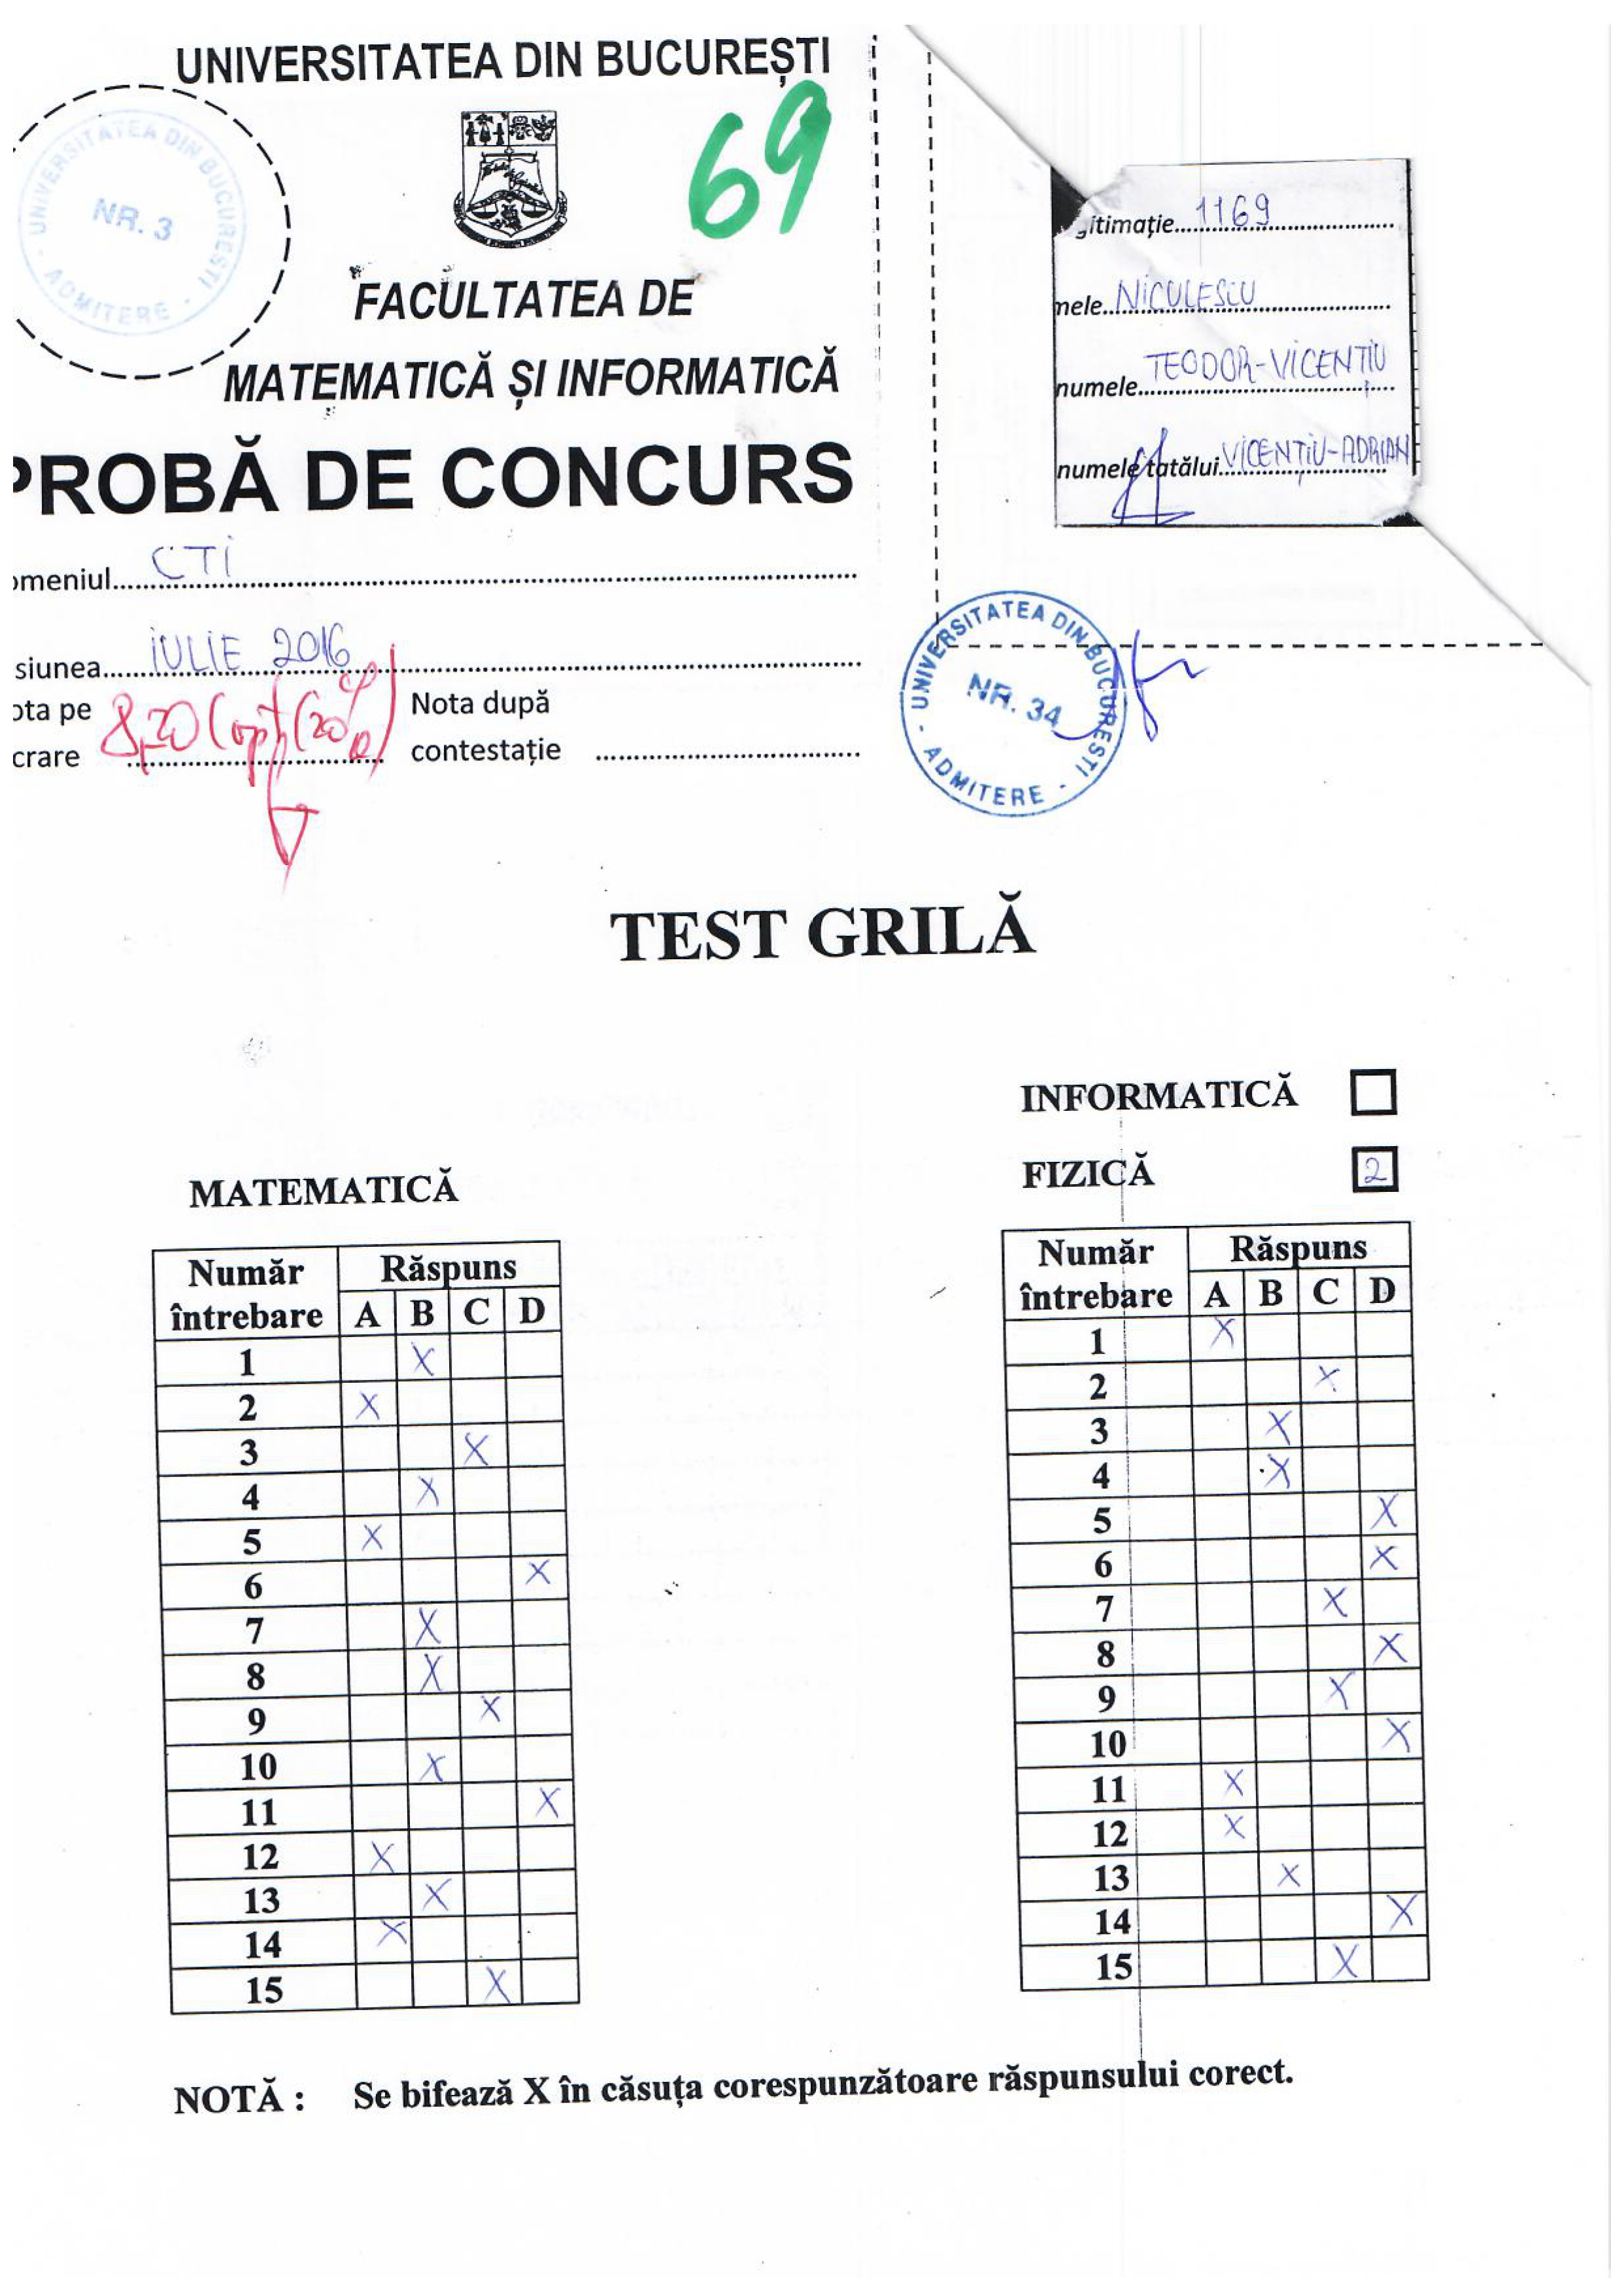 UNIVERSITATEA DIN BUCUREȘTI
UNIVERSITATEA DIN BUCURESTI
NR. 3
- ADMITERE -
69
FACULTATEA DE
MATEMATICĂ ȘI INFORMATICĂ
PROBĂ DE CONCURS
omeniul CTI
siunea IULIE 2016
ota pe
crare 8,20 (opt (20%)
Nota după
contestație
gitimație 1169
mele NICULESCU
numele TEODOR-VICENȚIU
numele tatălui VICENȚIU-ADRIAN
UNIVERSITATEA DIN BUCURESTI
NR. 34
- ADMITERE -
TEST GRILĂ
INFORMATICĂ
FIZICĂ 2
MATEMATICĂ
Număr întrebare Răspuns
A B C D
1 X
2 X
3 X
4 X
5 X
6 X
7 X
8 X
9 X
10 X
11 X
12 X
13 X
14 X
15 X
Număr întrebare Răspuns
A B C D
1 X
2 X
3 X
4 X
5 X
6 X
7 X
8 X
9 X
10 X
11 X
12 X
13 X
14 X
15 X
NOTĂ : Se bifează X în căsuța corespunzătoare răspunsului corect.